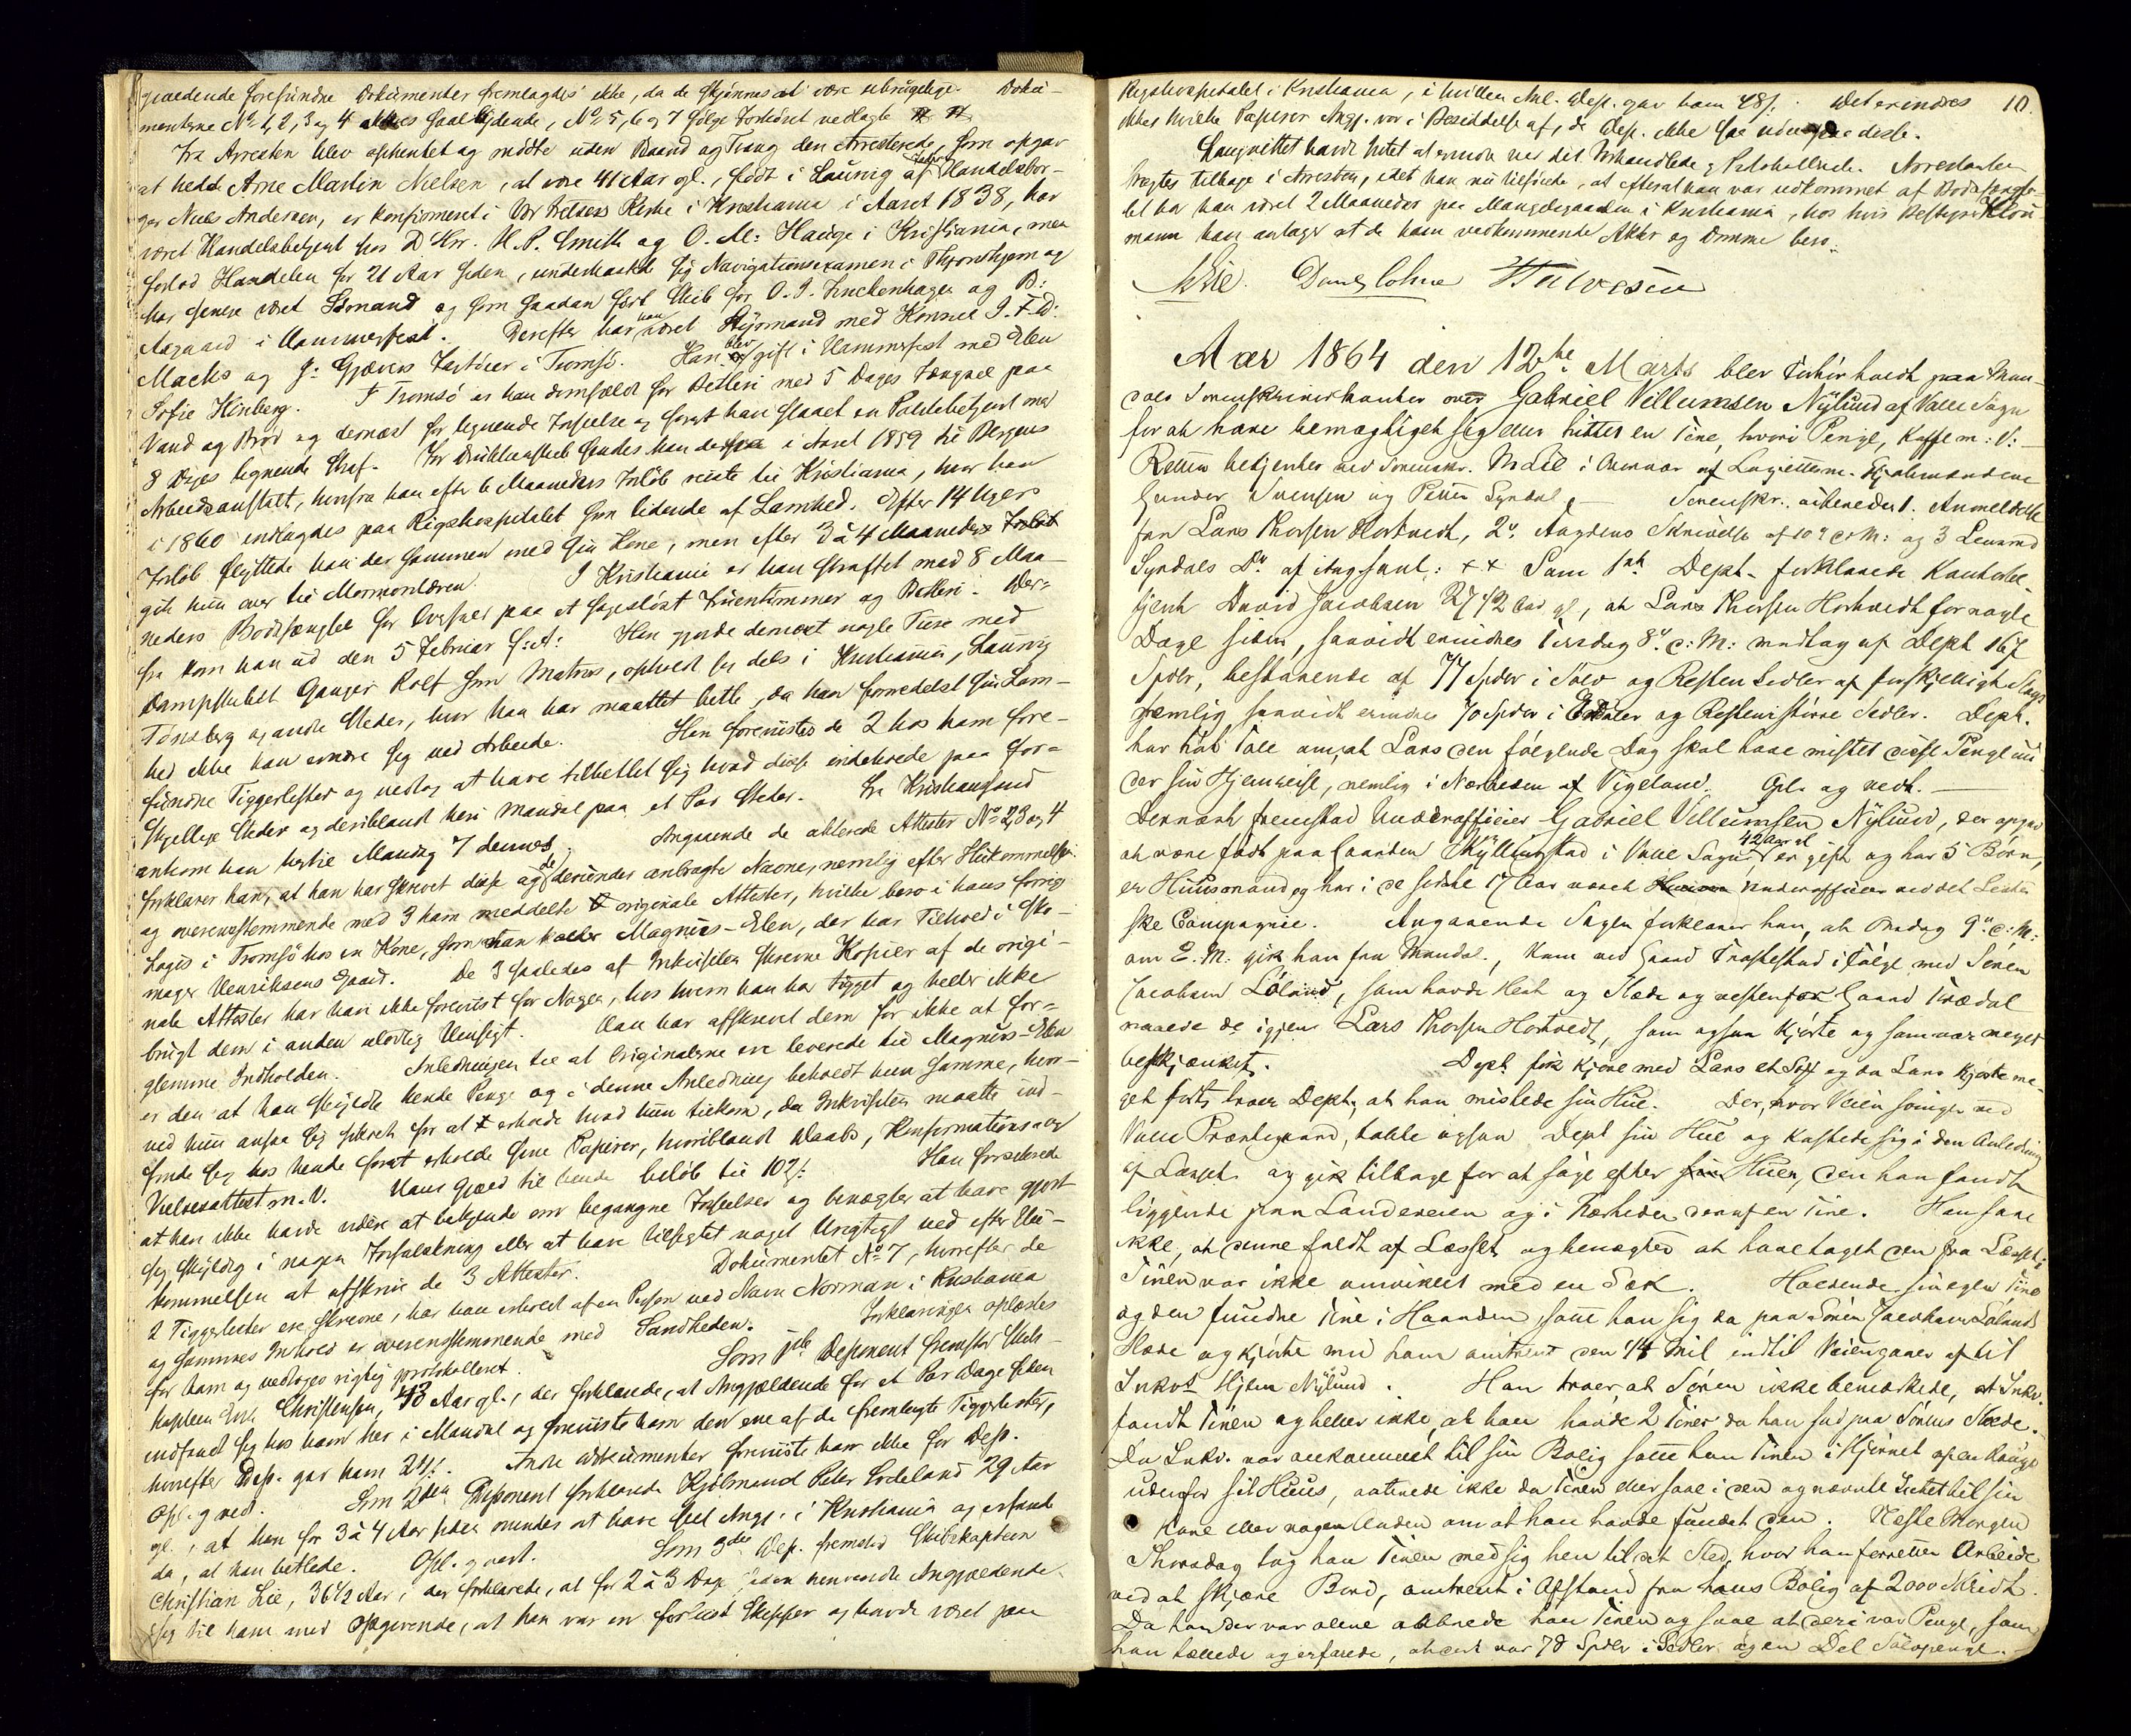 gjældende forefundne Dokumenter fremlagdes ikke, da de skjønnes at være ubrugelige. Doku-
menterne No 1, 2, 3 og 4 saalydende, No 5, 6 og 7 følge Forhøret vedlagte
Fra Arresten blev afhentet og mødte uden Baand og Tvang den Arresterede, som opgav
at hedde Arne Martin Nielsen, at være 41 Aar gl., født i Laurvig af Handelsbor-
ger Niels Andersen, er konfirmeret i Vor Frelsers Kirke i Kristiania i Aaret 1838, har
været Handelsbetjent hos D Hrr. H. P. Smith og O. M. Hauge i Kristiania, men
forlod Handelen for 21 Aar siden, underkastede sig Navigationsexamen i Throndhjem og
har senere været Sømand og som saadan ført Skib for O. J. Finckenhagen og B:
Aagaard i Hammerfest. Derefter har han været Styrmand med Konsul J. F. D.
Macks og J. Gjævers Fartøier i Tromsø. Han blev gift i Hammerfest med Elen
Sofie Hinberg. I Tromsø er han domfældt for Betleri med 5 Dages Fængsel paa
Vand og Brød og dernæst for lignende Forseelse og forat han slaaet en Politibetjent med
8 Dages lignende Straf. For Drukkenskab sendes han derfra i Aaret 1859 til Bergens
Arbeidsanstalt, hvorfra han efter 6 Maaneders Forløb reiste til Kristiania, hvor han
i 1860 indlagdes paa Rigshospitalet som lidende af Lamhed. Efter 14 Ugers
Forløb flyttede han der sammen med sin Kone, men efter 3 à 4 Maaneders
gik hun over til Mormonlæren. I Kristiania er han straffet med 8 Maa-
neders Bodsfængsel for Overfald paa et sagesløst Fruentimmer og Betleri. Der-
fra kom han ud den 5 Februar f: A: Han gjorde dernæst nogle Ture med
Dampskibet Ganger Rolf som Matros, opholdt sig dels i Kristiania, Laurvig
Tønsberg og andre Steder, hvor han har maattet betle, da han formedelst sin Lam-
hed ikke kan ernære sig ved Arbeide. Han foreviistes de 2 hos ham fore-
fundne Tiggerlister og vedtog at have tilbetlet sig hvad disse indeholde paa for-
skjellige Steder og deriblandt heri Mandal paa et Par Steder. Fra Kristiansand
ankom han hertil Mandag 7 dennes. Angaaende de ommeldte Attester No 2, 3 og 4
forklarer han, at han har skrevet disse og de derunder anbragte Navne, nemlig efter Hukommelsen
og overensstemmende med 3 ham meddelte originale Attester, hvilke bero i hans forrige
Logis i Tromsø hos en Kone, som han kalder Magnus-Elen, der har Tilhold i Sko-
mager Henriksens Gaard. De 3 saaledes af Inkvisiten skrevne Kopier af de origi-
nale Attester har han ikke forevist for Nogen, hos hvem han har tigget og heller ikke
brugt dem i anden ulovlig Hensigt. Han har afskrevet dem for ikke at for-
glemme Indholdet. Anledningen til at Originalerne ere leverede til Magnus-Elen
er den at han skyldte hende Penge og i denne Anledning beholdt hun samme, hvor-
ved hun ansaa sig sikret for at erholde hvad hun tilkom, da Inkvisiten maatte ind-
finde sig hos hende forat erholde sine Papirer, hvoriblandt Daabs, Konfirmations- og
Vielsesattest m. V. Hans Gjæld til hende beløb til 10 . Han forsikrede
at han ikke havde videre at bekjende om begangne Forseelser og benægter at have gjort
sig skyldig i nogen Forfalskning eller at have tilsigtet noget Urigtigt ved efter Hu-
kommelsen at afskrive de 3 Attester. Dokumentet No 7, hvorefter de
2 Tiggerlister ere skrevne, har han erholdt af en Person ved Navn Norman i Kristiania
og sammes Indhold er overensstemmende med Sandheden. Forklaringen oplæstes
for ham og vedtoges rigtig protokolleret. Som 1ste Deponent fremstod Skibs-
kaptein Christensen, 43 Aar gl., der forklarede, at Angjældende for et Par Dage siden
indfandt sig hos ham her i Mandal og foreviiste ham den ene af de fremlagte Tiggerlister,
hvorefter Dep. gav ham 24 . Andre Dokumenter foreviiste han ikke for Dep.
Opl. og ved. Som 2den Deponent forklarede Hjulmand Peter Lodeland 29 Aar
gl., at han for 3 à 4 Aar siden mindes at have seet Angj. i Kristiania og erfarede
da, at han betlede. Opl. og vedt. Som 3die Dep. fremstod Skibskaptein
Christian Lie, 36 1/2 Aar, der forklarede, at for 2 à 3 Dage siden henvendte Angjældende
sig til ham med Opgivende, at han var en forlist Skipper og havde været paa
Rigshospitalet i Kristiania, i hvilken Anl. Dep. gav ham 48 . Det erindres 10.
ikke hvilke Papirer Angj. var i Besiddelse af, da Dep. ikke saa nøie paa disse.
Laugrettet havde Intet at erindre ved det Forhandlede og Protokollerede. Arrestanten
bragtes tilbage i Arresten, idet han nu tilføiede, at efterat han var udkommet af Bodsfængs-
let har han været 2 Maaneder paa Mangelsgaarden i Kristiania, hos hvis Bestyrer
mann han antager at de ham vedkommende Akter og Domme bero.
Lie. Halvorsen
Aar 1864 den 12te Marts blev Forhør holdt paa Man-
dals Sorenskriverkontor over Gabriel Villumsen Nylund af Valle Sogn
for at have bemægtiget sig eller hittet en Tine, hvori Penge, Kaffe m: V: —
Retten betjentes ved Sorenskr. i Overvær af Laugrettem. Hjulmændene
Gunder Svensen og Peter Syrdal. — Sorenskr. 1. Anmeldelse
fra Lars Thorsen Hortvedt, 2. Fogdens Skrivelse af 10 d. M: og 3 Lensmd
Syrdals Do af idag saal.: ++ Som 1ste Dept. forklarede Kontorbe-
tjent David Jacobsen 27 1/2 Aar gl., at Lars Thorsen Hortvedt for nogle
Dage siden, saavidt erindres Tirsdag 8. d: M: modtog af Dept. 167
Spdlr, bestaaende af 77 Spdlr i Sølv og Resten Sedler af forskjelligt Slags
nemlig saavidt erindres 70 Spdlr i Enkeltdaler og Resten i større Sedler. Dept.
har hørt Tale om, at Lars den følgende Dag skal have mistet disse Penge un-
der sin Hjemreise, nemlig i Nærheden af Vigeland. Opl. og vedt. —
Dernæst fremstod Underofficier Gabriel Villumsen Nylund, der opgav
at være født paa Gaarden Kyllingstad i Valle Sogn, 42 Aar gl er gift og har 5 Børn,
er Huusmand og har i de sidste 17 Aar været Underofficier ved det Lister-
ske Compagnie. Angaaende Sagen forklarer han, at Onsdag 9. d: M:
om E. M. gik han fra Mandal, kom ved Gaard Frøstestad i Følge med Søren
Jacobsen Løland, som havde Hest og Slæde og nedenfor Gaard Trædal
naaede de igjen Lars Thorsen Hortvedt, som ogsaa kjørte og som var meget
beskjænket. Dept. fik kjøre med Lars et Støt og da Lars kjørte me-
get fort, troer Dept., at han mistede sin Hue. Der, hvor Veien svinger ved
Valle Præstegaard, tabte ogsaa Dept sin Hue og kastede sig i den Anledning
af Læsset og gik tilbage for at søge efter Huen, den han fandt
liggende paa Landeveien og i Nærheden deraf en Tine. Han saae
ikke, at denne faldt af Læsset, og benægtede at have taget den fra Læsset;
Tinen var ikke omviklet med en Sæk. Havende sin egen Tine
og den fundne Tine i Haanden, satte han sig da paa Søren Jacobsen Lølands
Slæde og kjørte med ham omtrent den 1/4 Mil indtil Veien gaaer af til
Inkvs Hjem Nylund. Han troer, at Søren ikke bemærkede, at Inkv.
fandt Tinen og heller ikke, at han havde 2 Tiner da han sad paa Sørens Slæde.
Da Inkv. var ankommet til sin Bolig satte han Tinen i Hjørnet af en
udenfor sit Huus, aabnede ikke da Tinen eller saae i den og nævnte Intet til sin
Kone eller nogen Anden om at han havde fundet den. Næste Morgen
Thorsdag tog han Tinen med sig hen til et Sted, hvor han forretter Arbeide
ved at skjære Bord, omtrent i Afstand fra hans Bolig af 2000 Skridt.
Da han der var alene aabnede han Tinen og saae at deri var Penge, som
han tællede og erfarede, at det var 78 Spdlr i Sedler og en Del Sølvpenge. —